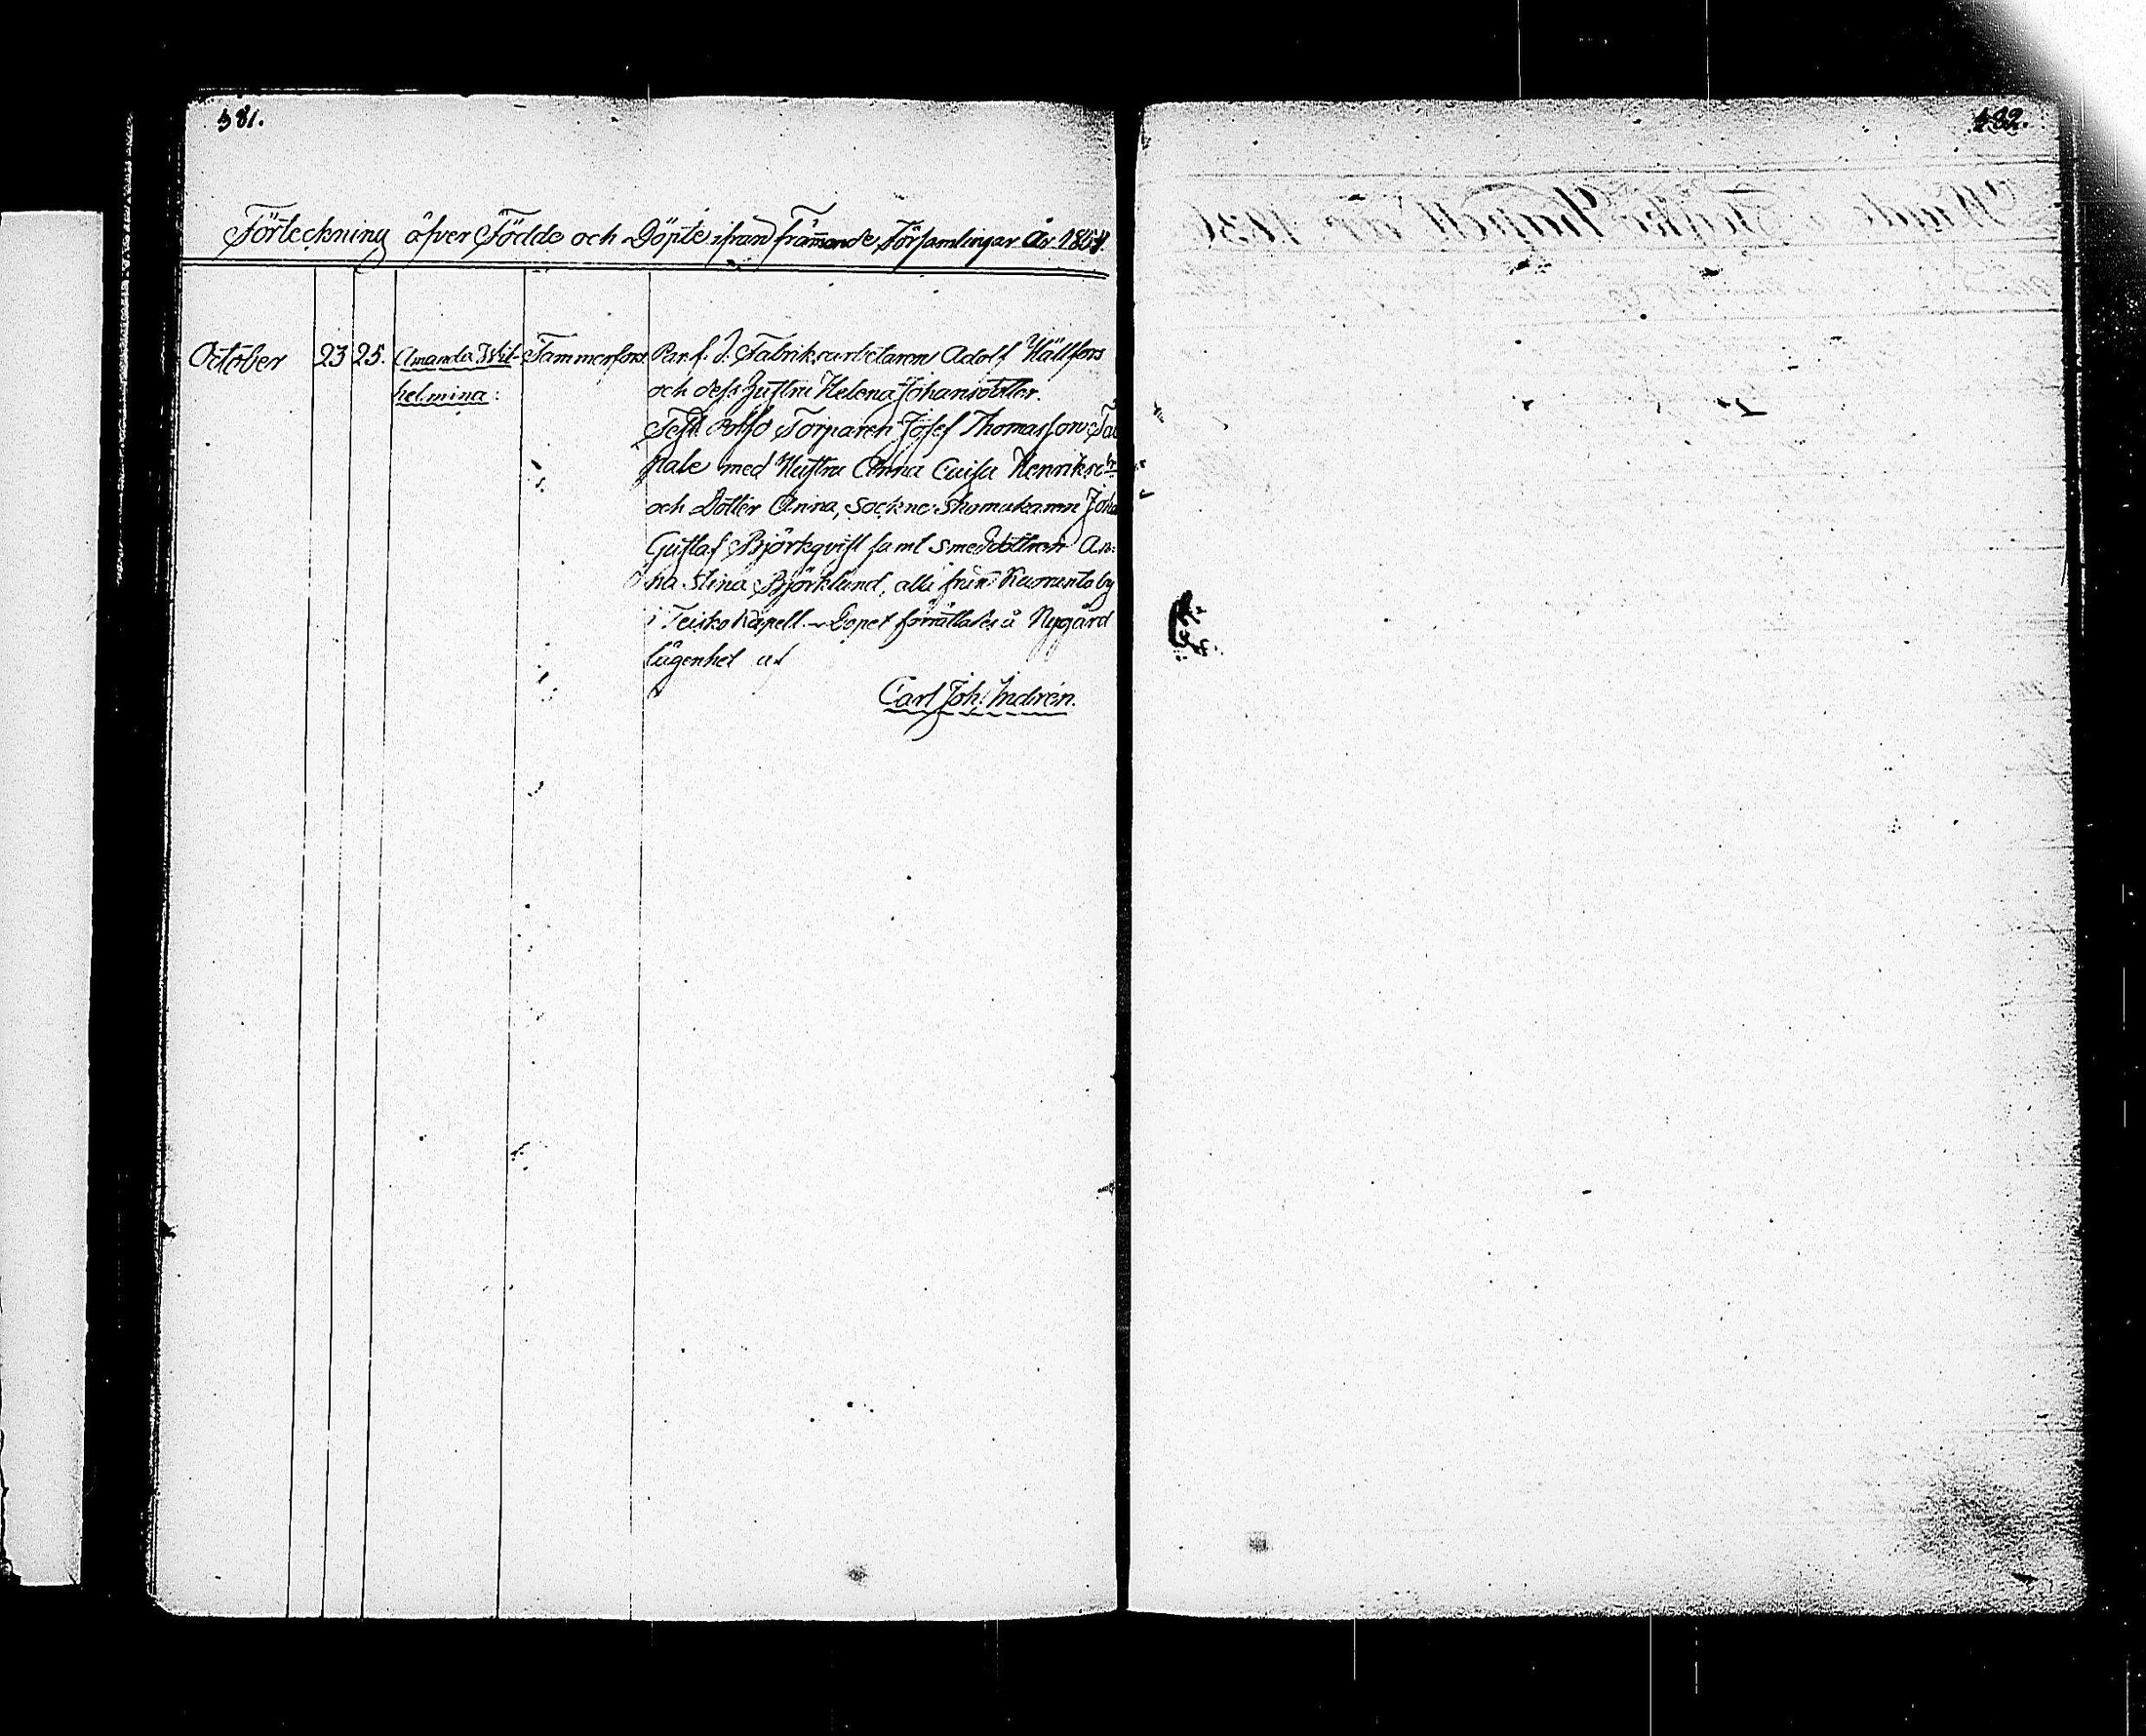 381.
Förteckning öfver Födde och Döpte ifrån främande Församlingar År 1864.
October 23 25. Amanda Wil- Tammerfors Par. f. Fabriksarbetaren Adolf Hällfors
helmina: och dess Hustru Helena Johansdotter.
Test. Torparen Josef Thomasson
med Hustru Anna Caisa Henriksdr
och Dotter Anna, Sockneskomakaren Joha
Gustaf Björkqvist samt smeddottren An-
na Stina Björklund, alla från by
i Teisko Kapell. Dopet förrättades å Nygård
lägenhet af
Carl Joh. Indrén.
382.